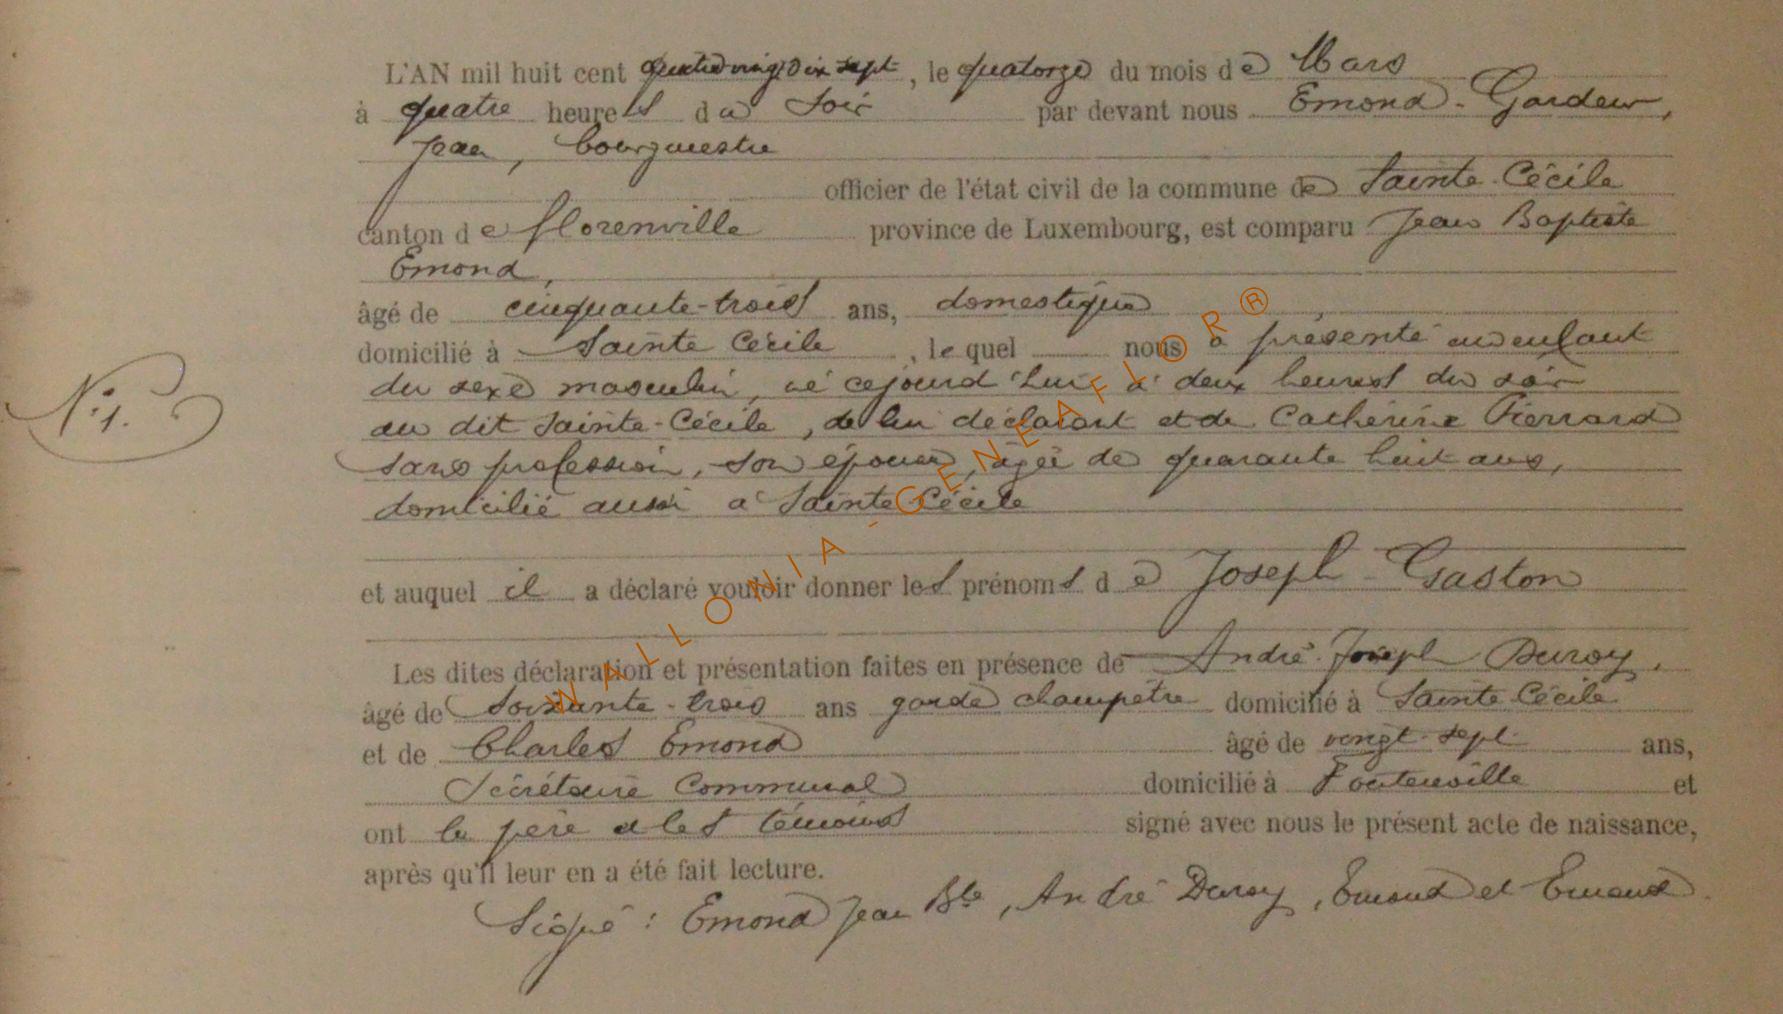 L'AN mil huit cent quatre vingt dix sept, le quatorze du mois de Mars
à quatre heures du Soir par devant nous Emond-Gardeur,
Jean, bourgmestre
officier de l'état civil de la commune de Sainte-Cécile
canton de florenville province de Luxembourg, est comparu Jean Baptiste
Emond,
âgé de cinquante-trois ans, domestique
domicilié à Sainte Cécile, lequel nous a présenté un enfant
du sexe masculin, né cejourd'hui à deux heures du soir
au dit Sainte-Cécile, de lui déclarant et de Catherine Pierrard
sans profession, son épouse, âgée de quarante huit ans,
domicilié aussi à Sainte Cécile
et auquel il a déclaré vouloir donner les prénoms de Joseph-Gaston
Les dites déclaration et présentation faites en présence de André Joseph Duroy,
âgé de soixante-trois ans garde champêtre domicilié à Sainte Cécile
et de Charles Emond âgé de vingt-sept ans,
Sécrétaire Communal domicilié à Fontenoille et
ont le père et les témoins signé avec nous le présent acte de naissance,
après qu'il leur en a été fait lecture.
Signé : Emond Jean Bte, André Duroy, Emond et Emond.
N°: 1.
WALLONIA-GENEAFLOR®